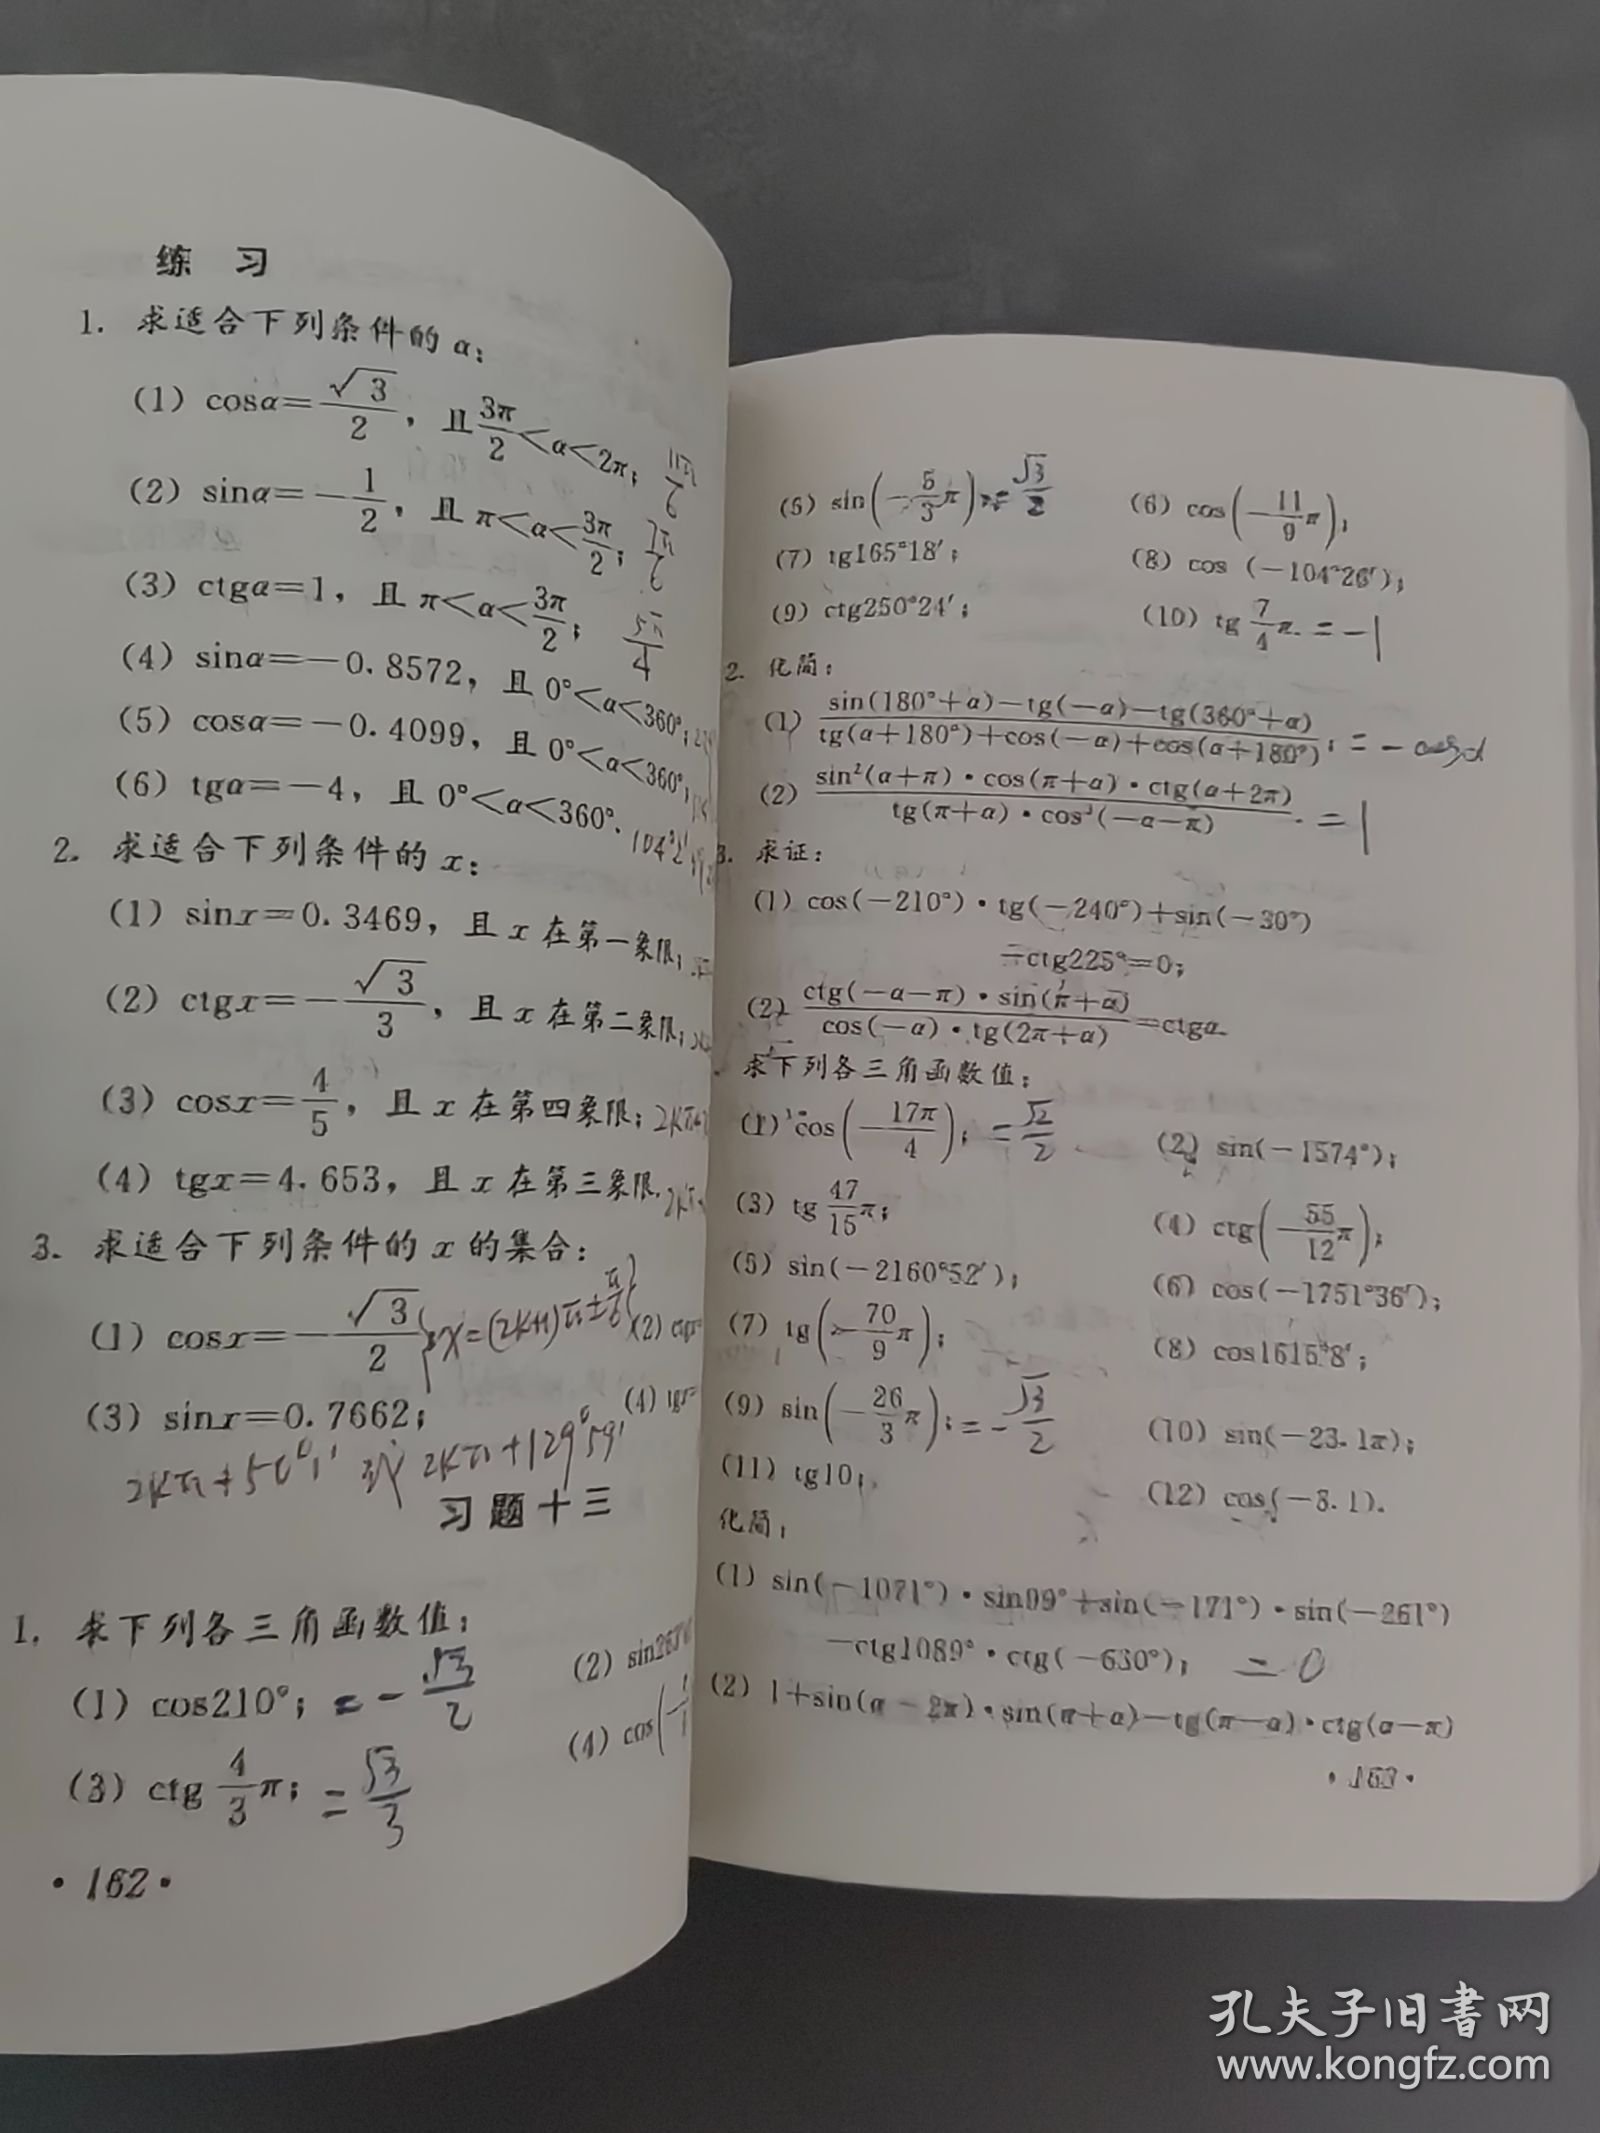 练 习
1. 求适合下列条件的 α:
(1) cosα=√3/2, 且 3π/2<α<2π; 11π/6
(2) sinα=-1/2, 且 π<α<3π/2; 7π/6
(3) ctgα=1, 且 π<α<3π/2; 5π/4
(4) sinα=-0.8572, 且 0°<α<360°;
(5) cosα=-0.4099, 且 0°<α<360°;
(6) tgα=-4, 且 0°<α<360°. 104°2′
2. 求适合下列条件的 x:
(1) sinx=0.3469, 且 x 在第一象限;
(2) ctgx=-√3/3, 且 x 在第二象限;
(3) cosx=4/5, 且 x 在第四象限; 2Kπ+
(4) tgx=4.653, 且 x 在第三象限. 2Kπ+
3. 求适合下列条件的 x 的集合:
(1) cosx=-√3/2 {x=(2K+1)π±π/6} (2) ctgx=
(3) sinx=0.7662; (4) tgx=
2Kπ+50°1′ 或 2Kπ+129°59′
习题十三
1. 求下列各三角函数值:
(1) cos210°; =-√3/2 (2) sin267°
(3) ctg 4/3 π; =√3/3 (4) cos(-
·162·
(5) sin(-5/3 π); =√3/2 (6) cos(-11/9 π);
(7) tg165°18′; (8) cos (-104°26′);
(9) ctg250°24′; (10) tg 7/4 π. =-1
2. 化简:
(1) sin(180°+α)-tg(-α)-tg(360°+α)/tg(α+180°)+cos(-α)+cos(α+180°); =-cosα
(2) sin²(α+π)·cos(π+α)·ctg(α+2π)/tg(π+α)·cos³(-α-π). =1
3. 求证:
(1) cos(-210°)·tg(-240°)+sin(-30°)
-ctg225°=0;
(2) ctg(-α-π)·sin(π+α)/cos(-α)·tg(2π+α)=ctgα.
求下列各三角函数值:
(1) cos(-17π/4); =√2/2 (2) sin(-1574°);
(3) tg 47/15 π; (4) ctg(-55/12 π);
(5) sin(-2160°52′); (6) cos(-1751°36′);
(7) tg(-70/9 π); (8) cos1615°8′;
(9) sin(-26/3 π); =-√3/2 (10) sin(-23.1π);
(11) tg10; (12) cos(-8.1).
化简:
(1) sin(-1071°)·sin99°+sin(-171°)·sin(-261°)
-ctg1089°·ctg(-630°); =0
(2) 1+sin(α-2π)·sin(π+α)-tg(π-α)·ctg(α-π)
·163·
孔夫子旧书网
www.kongfz.com